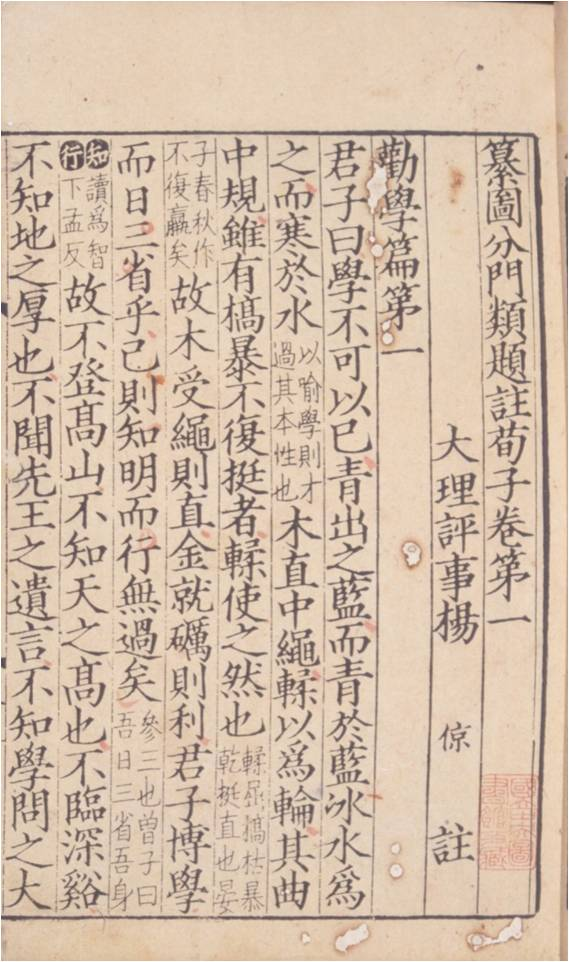 纂圖分門類題註荀子卷第一
大理評事楊 倞 註
勸學篇第一
君子曰學不可以已青出之藍而青於藍冰水爲
之而寒於水以喻學則才過其本性也木直中繩輮以爲輪其曲
中規雖有槁暴不復挺者輮使之然也輮屈槁枯暴乾挺直也晏
子春秋作不復贏矣故木受繩則直金就礪則利君子博學
而日三省乎己則知明而行無過矣參三也曾子曰吾日三省吾身
知讀爲智行下孟反故不登髙山不知天之髙也不臨深谿
不知地之厚也不聞先王之遺言不知學問之大